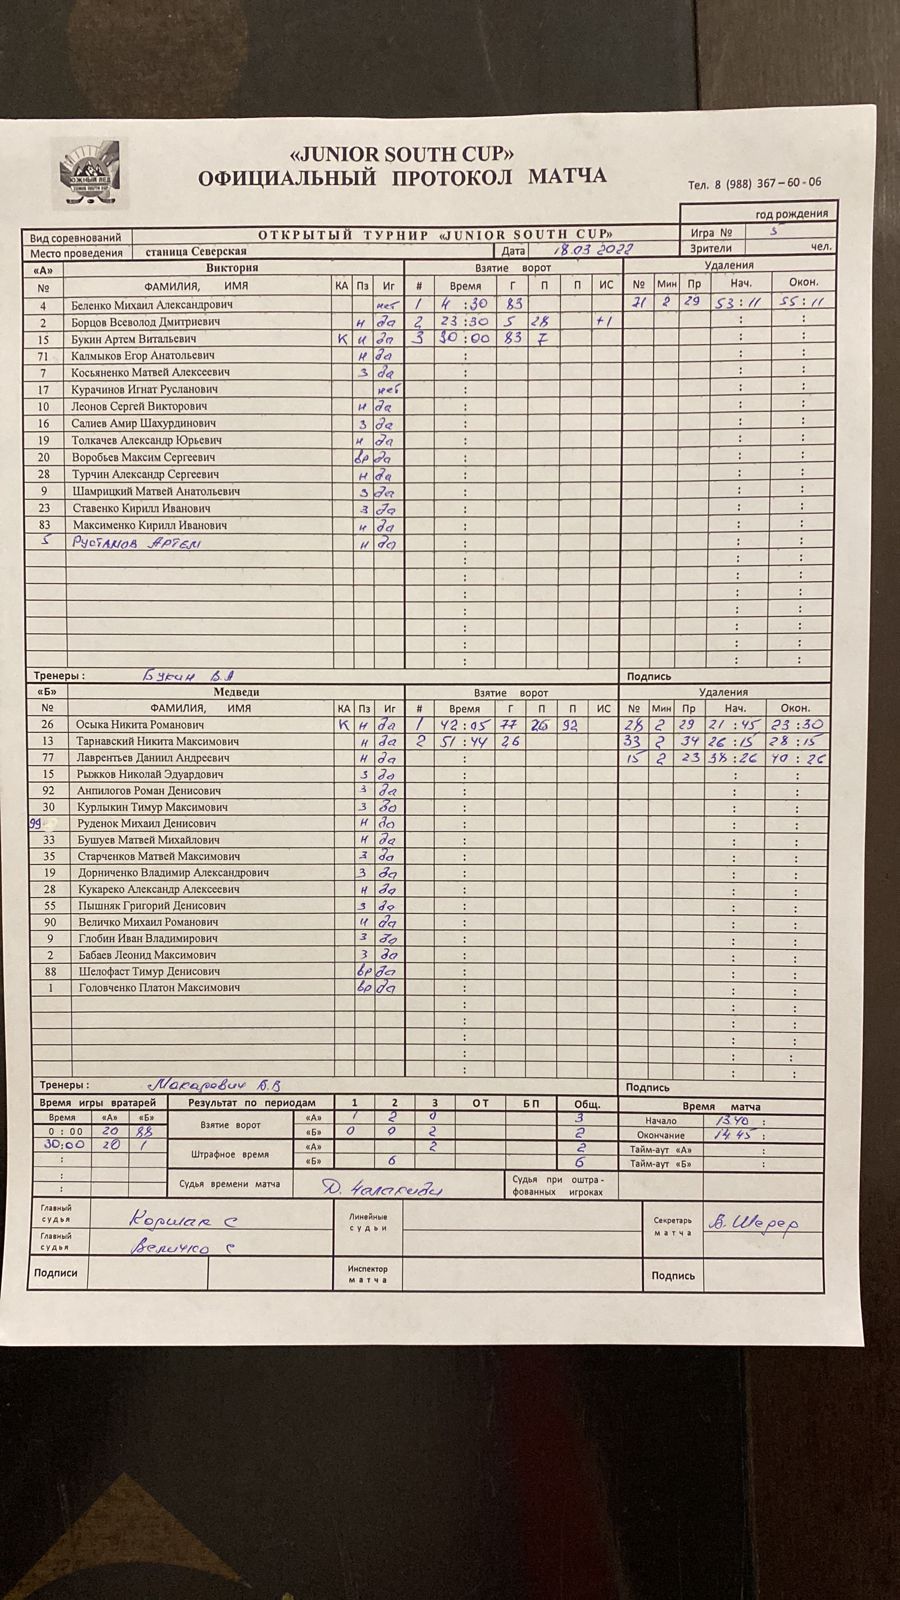 «JUNIOR SOUTH CUP»
ОФИЦИАЛЬНЫЙ ПРОТОКОЛ МАТЧА
ЮЖНЫЙ ЛЕД
Тел. 8 (988) 367-60-06
год рождения
Вид соревнований ОТКРЫТЫЙ ТУРНИР «JUNIOR SOUTH CUP» Игра № 5
Место проведения станица Северская Дата 18.03 2022 Зрители чел.
«А» Виктория Взятие ворот Удаления
№ ФАМИЛИЯ, ИМЯ КА Пз Иг # Время Г П П ИС № Мин Пр Нач. Окон.
4 Беленко Михаил Александрович нет 1 4 :30 83 71 2 29 53:11 55:11
2 Борцов Всеволод Дмитриевич н да 2 23:30 5 28 +1 : :
15 Букин Артем Витальевич К н да 3 30:00 83 7 : :
71 Калмыков Егор Анатольевич н да : : :
7 Косьяненко Матвей Алексеевич з да : : :
17 Курачинов Игнат Русланович нет : : :
10 Леонов Сергей Викторович н да : : :
16 Салиев Амир Шахурдинович з да : : :
19 Толкачев Александр Юрьевич н да : : :
20 Воробьев Максим Сергеевич вр да : : :
28 Турчин Александр Сергеевич н да : : :
9 Шамрицкий Матвей Анатольевич з да : : :
23 Ставенко Кирилл Иванович з да : : :
83 Максименко Кирилл Иванович н да : : :
5 Рустамов Артем н да : : :
Тренеры : Букин В.А Подпись
«Б» Медведи Взятие ворот Удаления
№ ФАМИЛИЯ, ИМЯ КА Пз Иг # Время Г П П ИС № Мин Пр Нач. Окон.
26 Осыка Никита Романович К н да 1 42:05 77 26 92 28 2 29 21:45 23:30
13 Тарнавский Никита Максимович н да 2 51:44 26 33 2 34 26:15 28:15
77 Лаврентьев Даниил Андреевич н да : 15 2 23 38:26 40:26
15 Рыжков Николай Эдуардович з да : : :
92 Анпилогов Роман Денисович з да : : :
30 Курлыкин Тимур Максимович з да : : :
99 Руденок Михаил Денисович н да : : :
33 Бушуев Матвей Михайлович н да : : :
35 Старченков Матвей Максимович з да : : :
19 Дорниченко Владимир Александрович з да : : :
28 Кукареко Александр Алексеевич н да : : :
55 Пышняк Григорий Денисович з да : : :
90 Величко Михаил Романович н да : : :
9 Глобин Иван Владимирович з да : : :
2 Бабаев Леонид Максимович з да : : :
88 Шелофаст Тимур Денисович вр да : : :
1 Головченко Платон Максимович вр да : : :
Тренеры : Макарович В.В Подпись
Время игры вратарей Результат по периодам 1 2 3 ОТ БП Общ. Время матча
Время «А» «Б» Взятие ворот «А» 1 2 0 3 Начало 13.40 :
0 : 00 20 88 «Б» 0 0 2 2 Окончание 14.45 :
30:00 20 1 Штрафное время «А» 2 2 Тайм-аут «А» :
: «Б» 6 6 Тайм-аут «Б» :
Судья времени матча Судья при оштрафованных игроках
Главный судья Коршак С Линейные судьи Секретарь матча В. Шерер
Главный судья Величко С
Подписи Инспектор матча Подпись